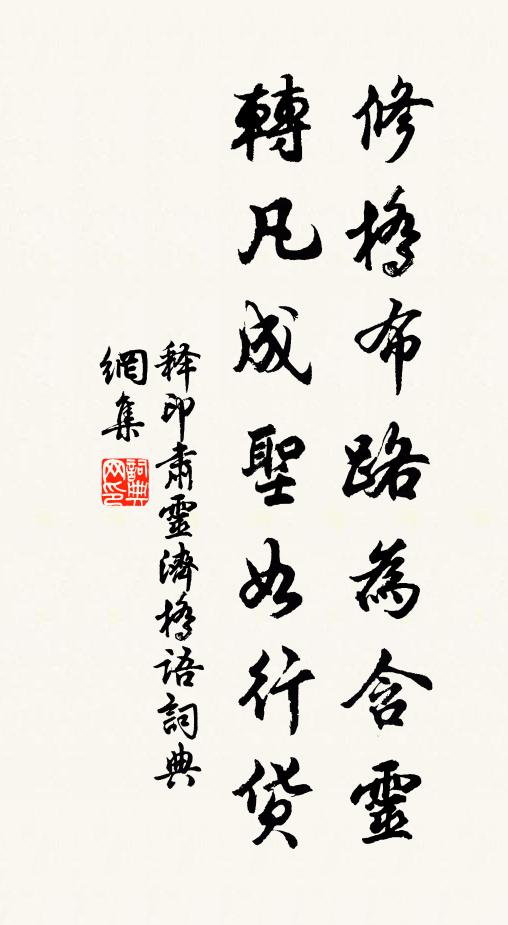 修橋布路為含靈
轉凡成聖如行貨
释印肅靈濟橋語詞典
網集
詞典
网印